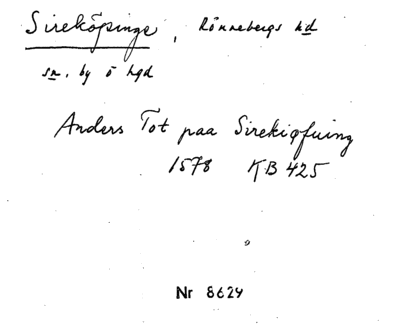 Sireköpinge, Rönnebergs hd
sn, by o hgd
Anders Tot paa Sirekiøfuing
1578 KB 425
Nr 8624